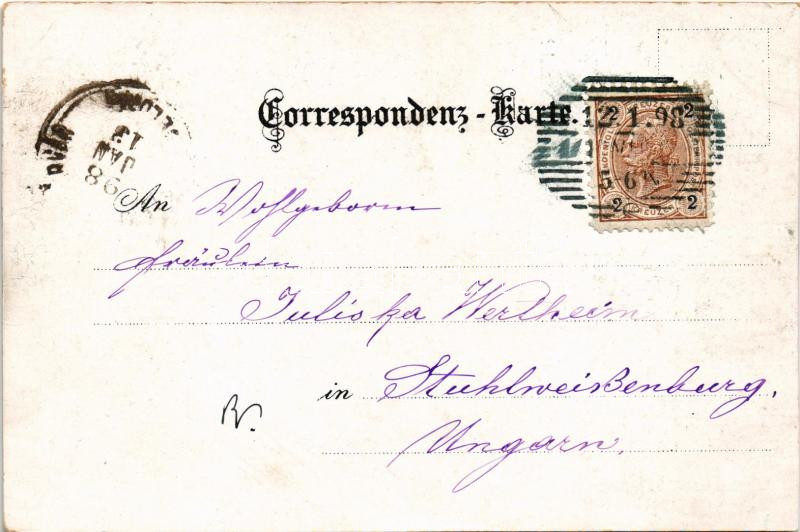 Correspondenz-Karte.
12 1.98
2 2
2 KREUZER 2
JAN
98
An Wohlgeboren
Fräulein
Juliska Wertheim
in Stuhlweißenburg,
Ungarn.